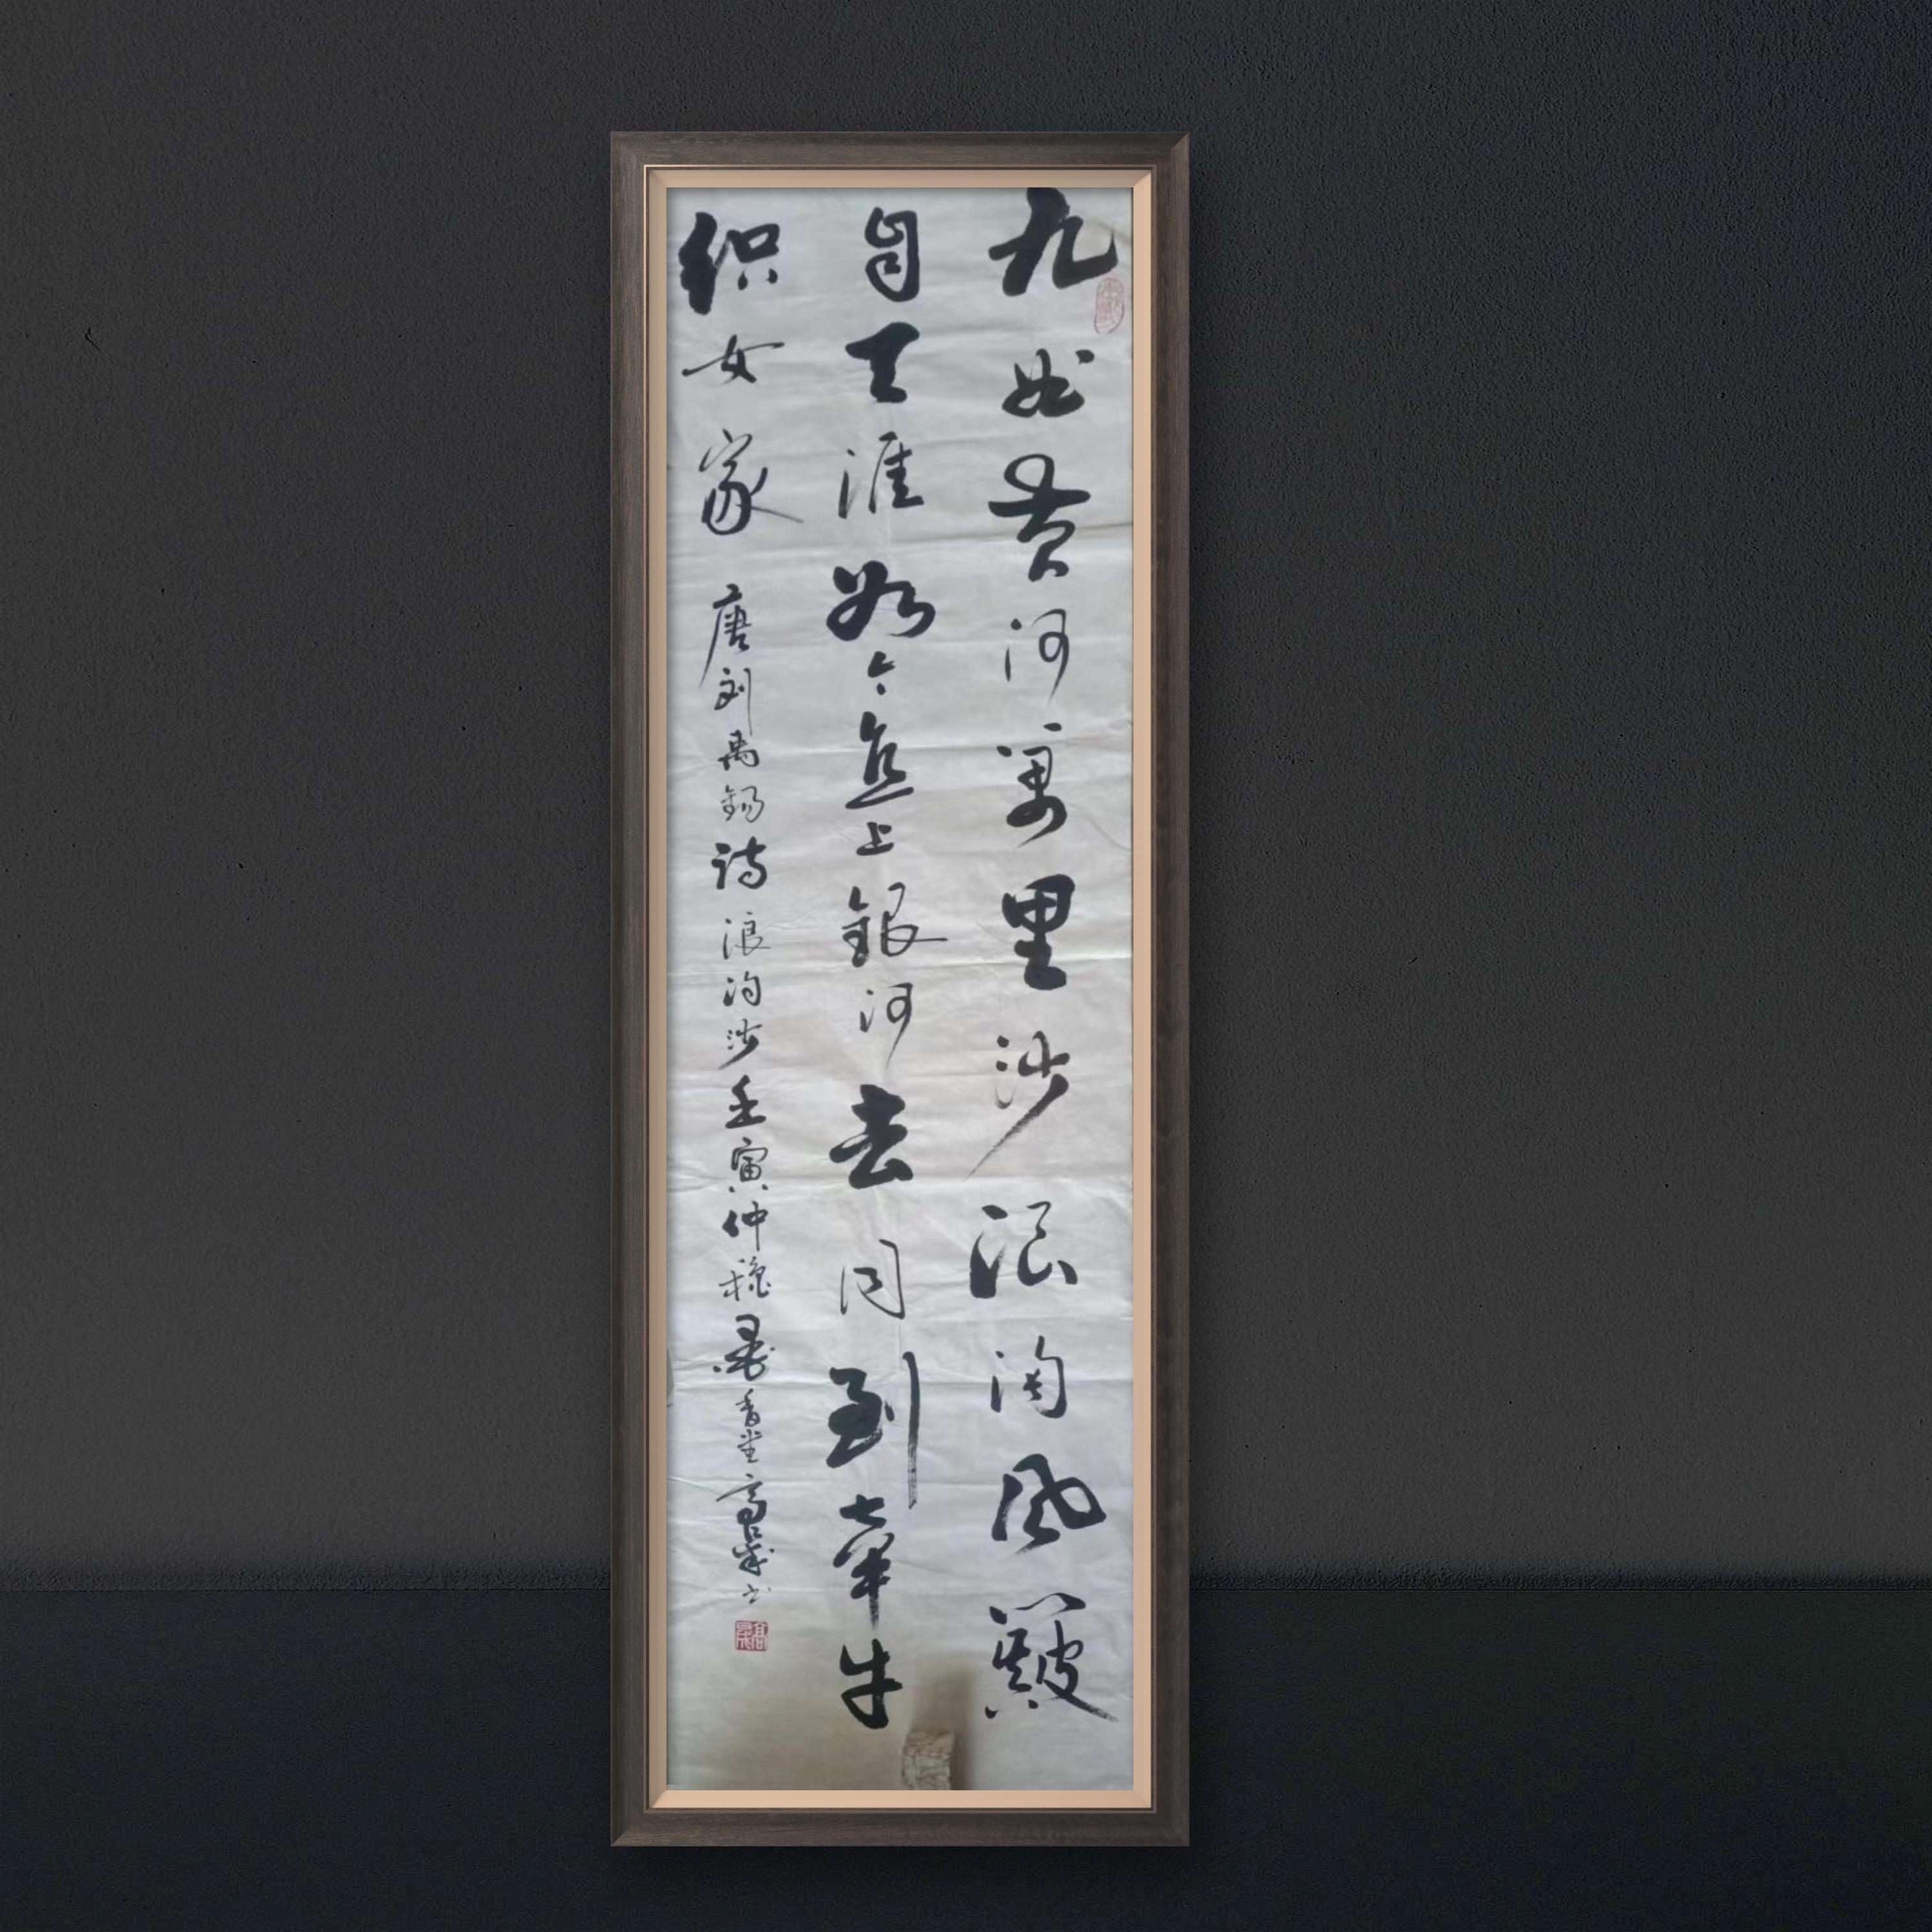 九曲黄河万里沙浪淘风簸
自天涯如今直上银河去同到牵牛
织女家 唐刘禹锡诗浪淘沙壬寅仲秋墨香堂高晟书